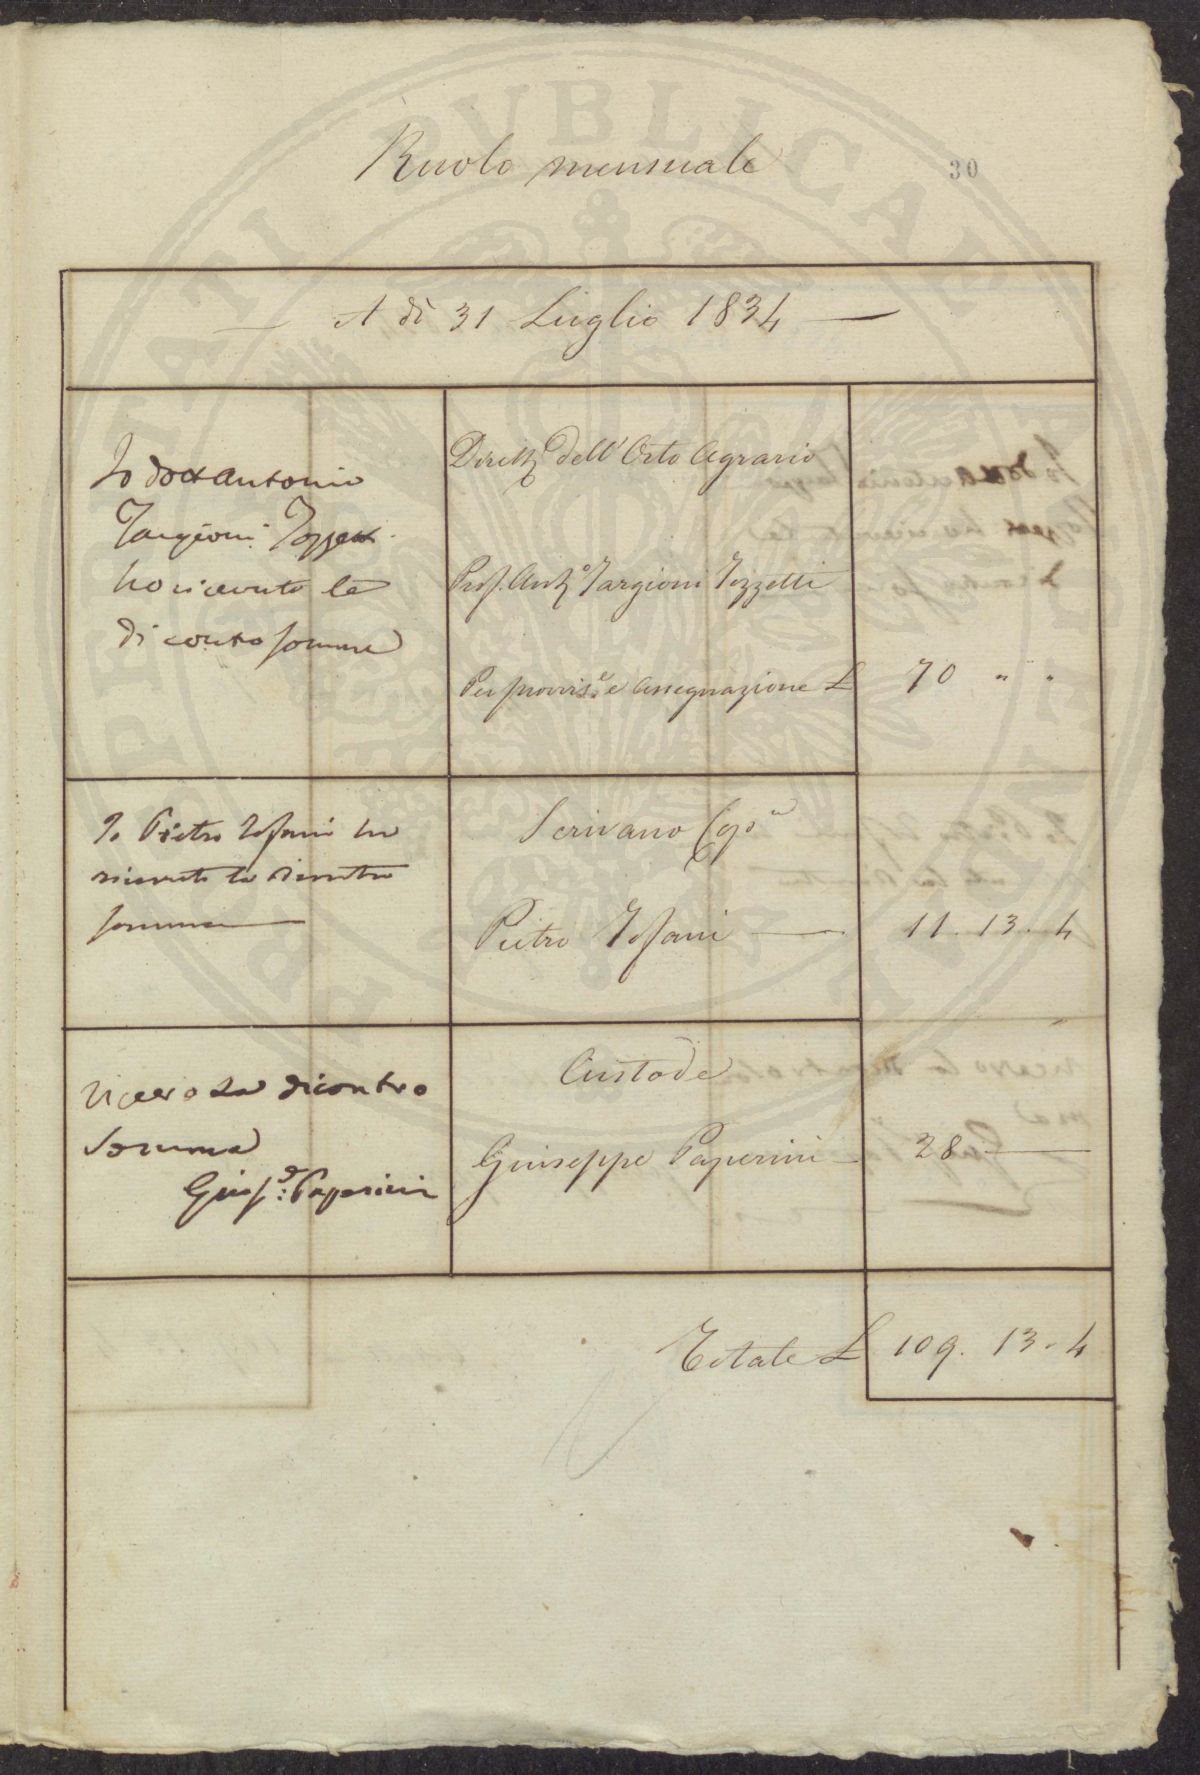 Ruolo mensuale
30
A dì 31 Luglio 1834
Io Dott Antonio
Targioni Tozzett
ho ricevuto la
di contro somma
Dirett.e dell' Orto Agrario
Prof. Ant.o Targioni Tozzetti
Per provvis.e e assegnazione L 70 " "
Io Pietro Tofani ho
ricevuto la dicontro
somma
Scrivano
Pietro Tofani
11. 13. 4
Ricevo La dicontro
Somma
Gius.e: Paperini
Custode
Giuseppe Paperini
28
Totale L 109. 13. 4
PIETATI PUBLICAE